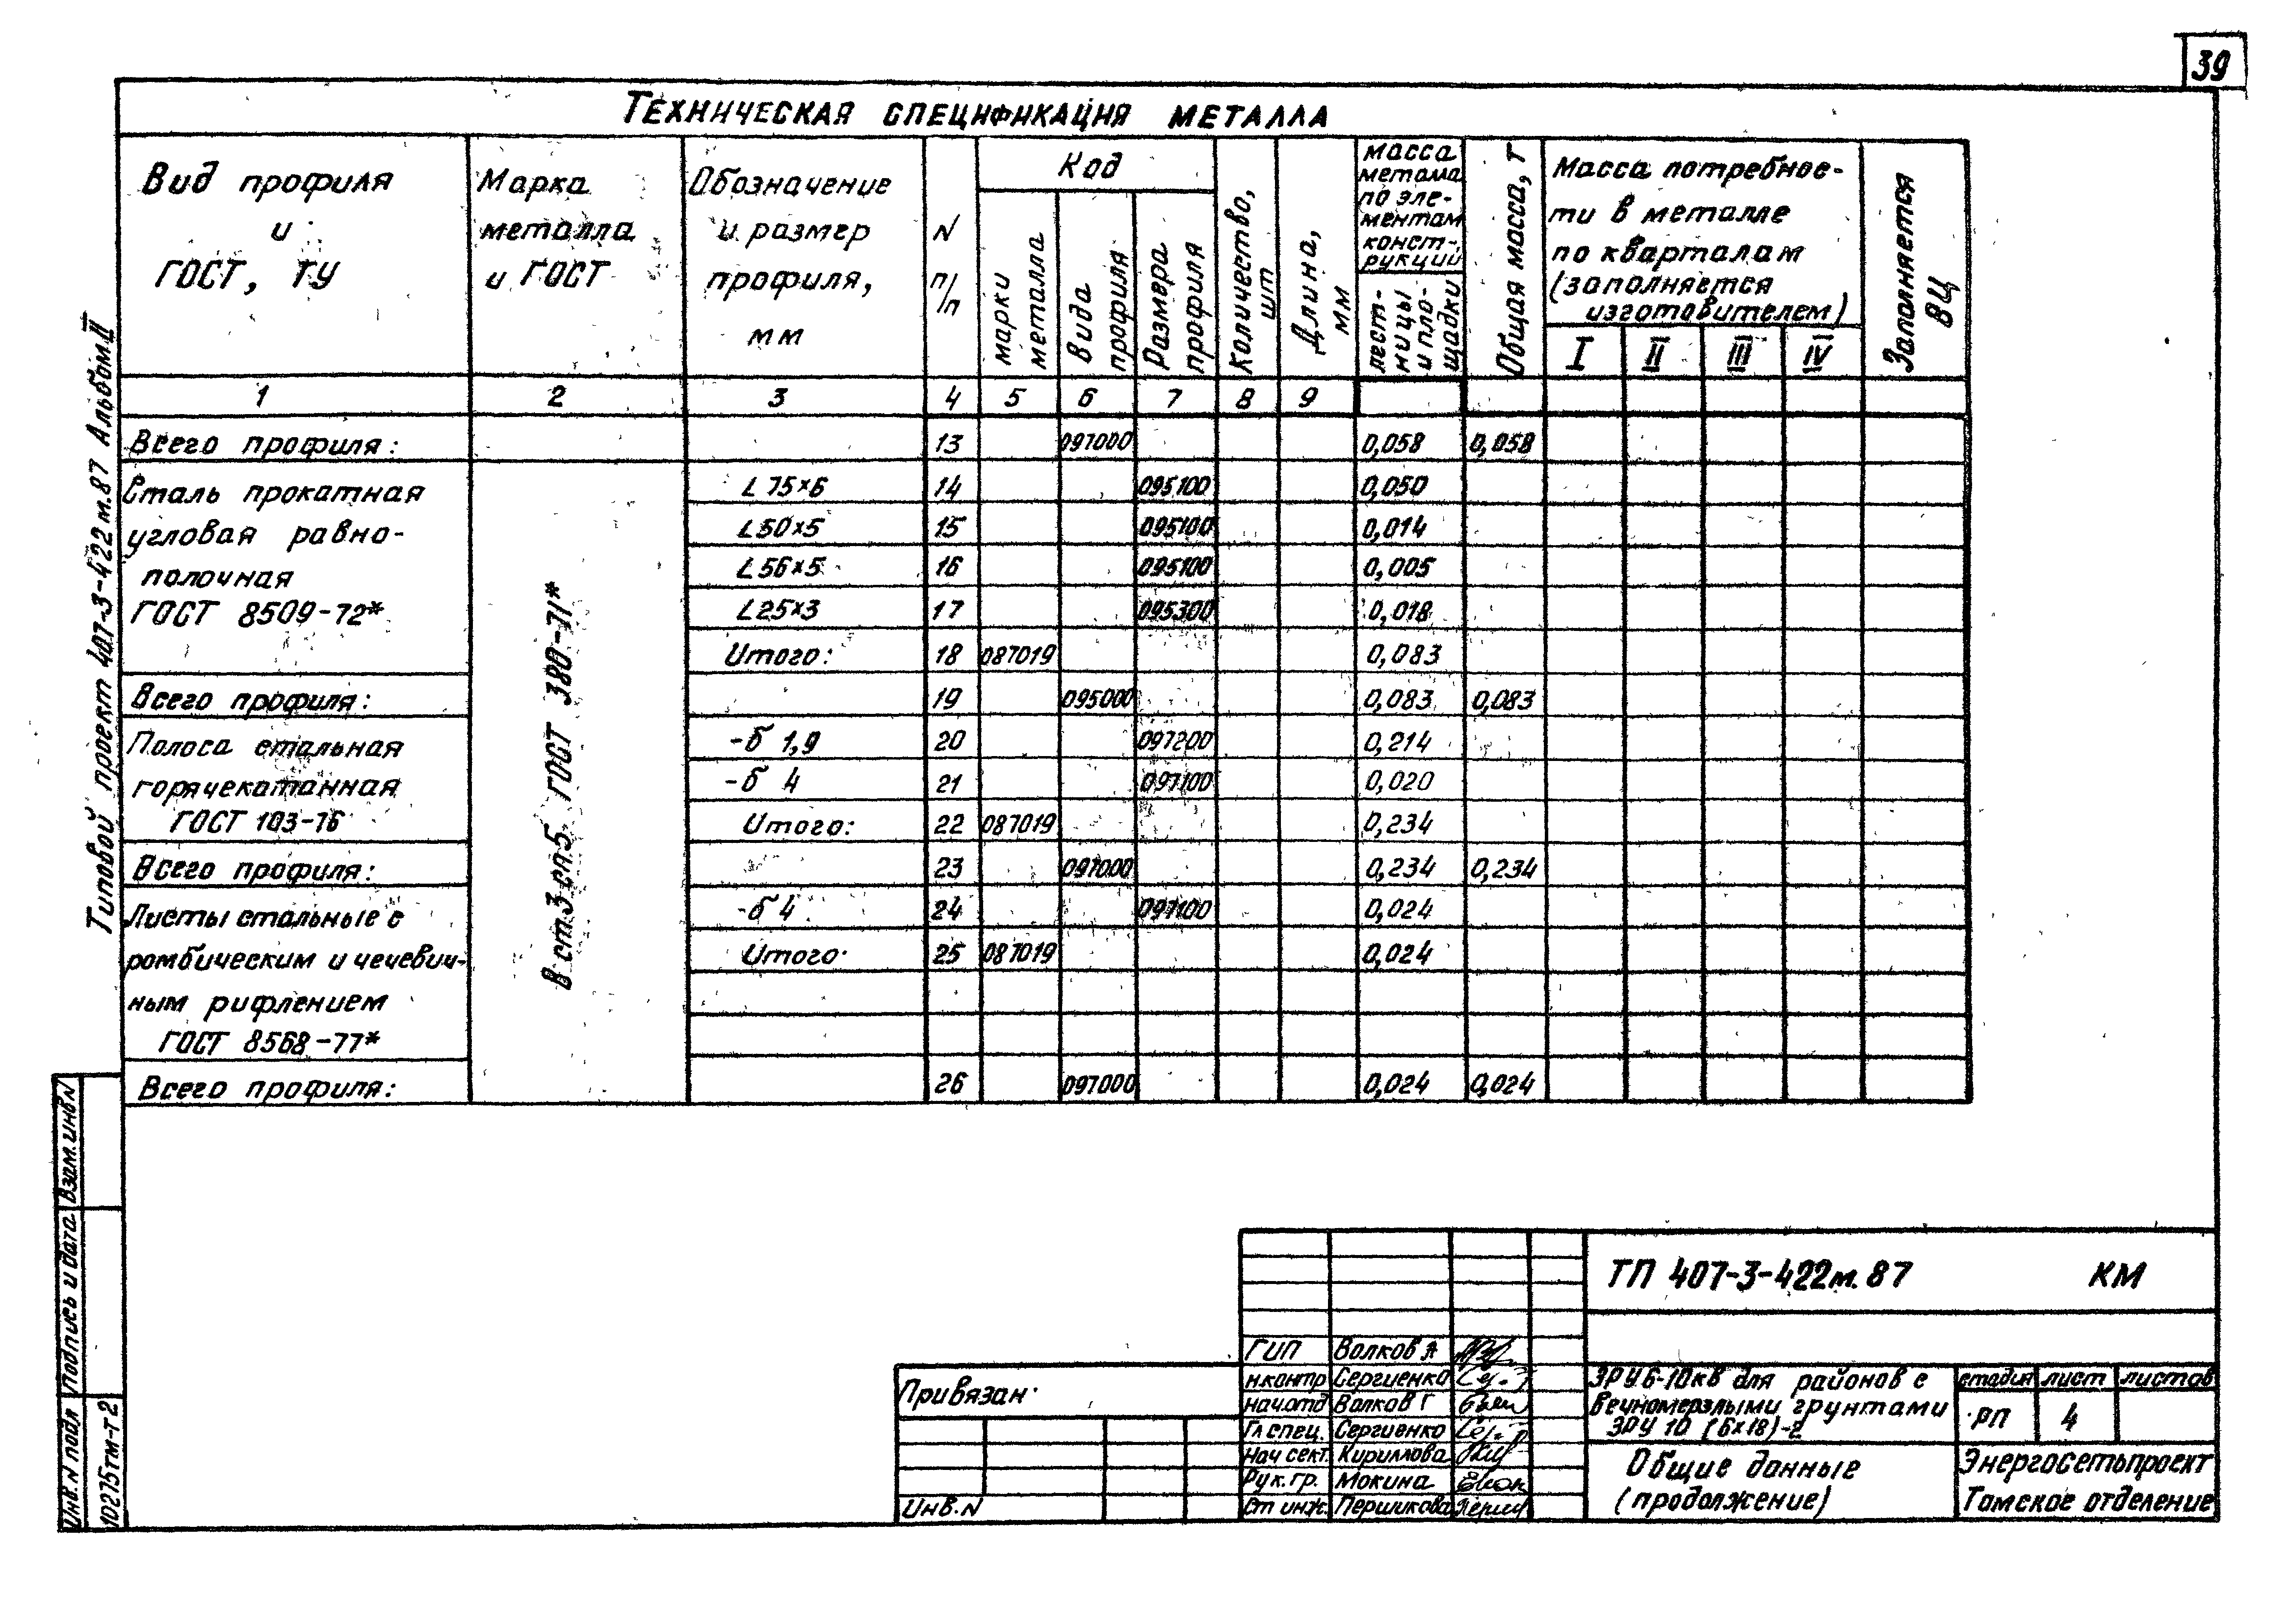 39
Техническая спецификация металла
Вид профиля
и
ГОСТ, ТУ
Марка
металла
и ГОСТ
Обозначение
и размер
профиля,
мм
N
п/п
Код
марки
металла
вида
профиля
Размера
профиля
Количество,
шт
Длина,
мм
масса
метала
по эле-
ментам
конст-
рукций
лест-
ницы
и пло-
щадки
Общая масса, т
Масса потребнос-
ти в металле
по кварталам
(заполняется
изготовителем)
I II III IV
Заполняется
ВЦ
1 2 3 4 5 6 7 8 9
Всего профиля: 13 097000 0,058 0,058
Сталь прокатная
угловая равно-
полочная
ГОСТ 8509-72*
В ст3 сп5 ГОСТ 380-71*
L 75×6 14 095100 0,050
L50×5 15 095100 0,014
L56×5 16 095100 0,005
L25×3 17 095300 0,018
Итого: 18 087019 0,083
Всего профиля: 19 095000 0,083 0,083
Полоса стальная
горячекатанная
ГОСТ 103-76
-б 1,9 20 097200 0,214
-б 4 21 097100 0,020
Итого: 22 087019 0,234
Всего профиля: 23 097000 0,234 0,234
Листы стальные с
ромбическим и чечевич-
ным рифлением
ГОСТ 8568-77*
-б 4 24 097100 0,024
Итого 25 087019 0,024
Всего профиля: 26 097000 0,024 0,024
Типовой проект 407-3-422м.87 Альбом II
Взам. инв N
Подпись и дата
Инв. N подл
10275тм-т2
Привязан
Инв. N
ГИП Волков А
н.контр Сергиенко
нач.отд Волков Г
Гл спец. Сергиенко
Нач сект. Кириллова
Рук. гр. Мокина
Ст инж. Першикова
ТП 407-3-422м.87 КМ
ЗРУ 6-10кв для районов с
вечномерзлыми грунтами
ЗРУ 10 (6×18)-2
стадия лист листов
рп 4
Общие данные
(продолжение)
Энергосетьпроект
Томское отделение